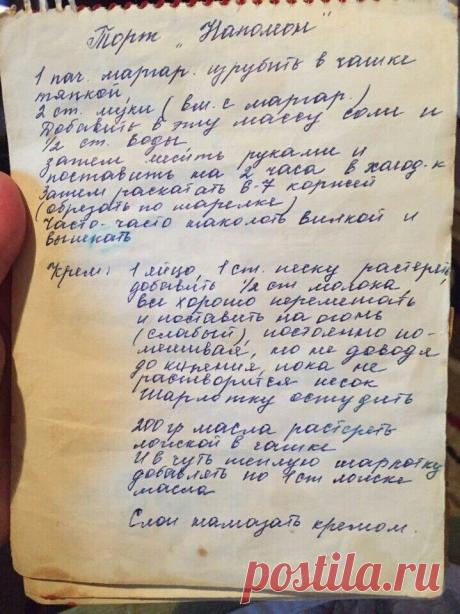 Торт „Наполеон"
1 пач. маргар. изрубить в чашке
тяпкой,
2 ст. муки (вм. с маргар.)
Добавить в эту массу соли и
1/2 ст. воды
затем месить руками и
поставить на 2 часа в холод-к
Затем раскатать 6-7 коржей
(обрезать по тарелке)
Часто-часто наколоть вилкой и
выпекать
Крем: 1 яйцо, 1 ст. песку растереть
добавить 1/2 ст молока,
все хорошо перемешать
и поставить на огонь
(слабый), постоянно по-
мешивая, но не доводя
до кипения, пока не
растворится песок
Шарлотку остудить
200 гр масла растереть
ложкой в чашке
И в чуть теплую шарлотку
добавлять по 1 ст ложке
масла
Слои намазать кремом.
postila.ru